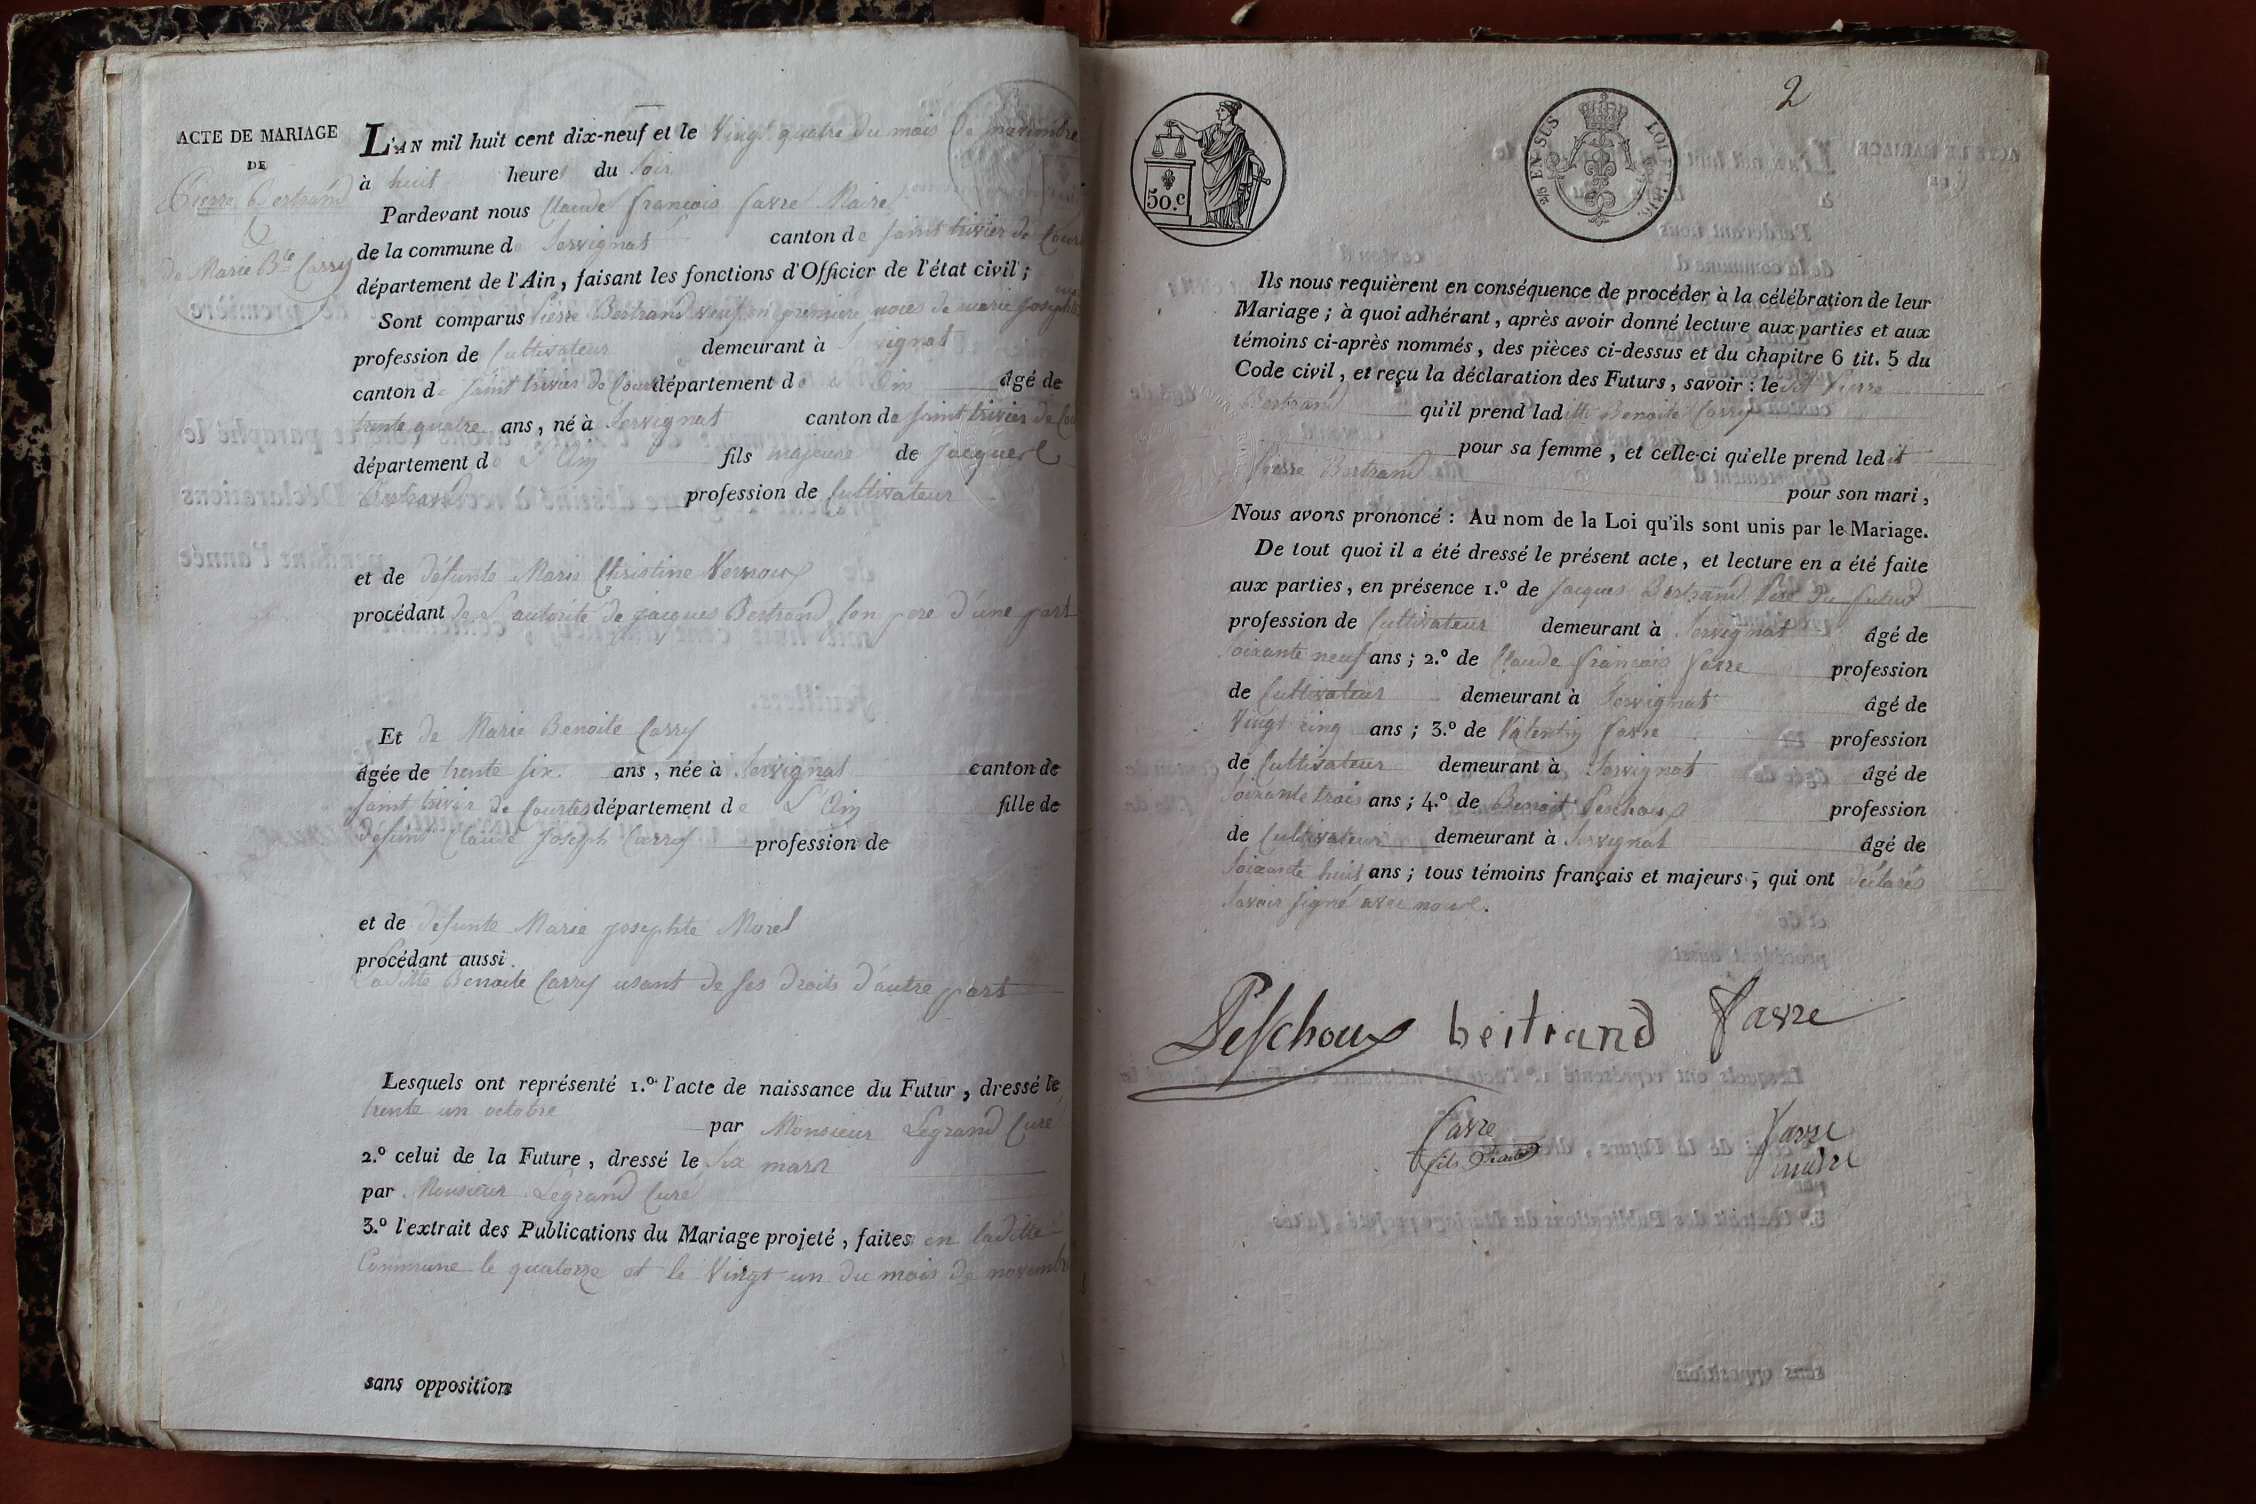 ACTE DE MARIAGE
DE
Pierre Bertrand
&
de Marie Bte Carry
L'AN mil huit cent dix-neuf et le Vingt quatre du mois de novembre
à huit heures du Soir
Pardevant nous Claude françois favre Maire
de la commune de Servignat canton de Saint trivier de Cour
département de l'Ain, faisant les fonctions d'Officier de l'état civil;
Sont comparus Pierre Bertrand veuf en premiere noces de marie Josephte
profession de Cultivateur demeurant à Servignat
canton de Saint trivier de Courtes département de L'Ain âgé de
trente quatre ans, né à Servignat canton de Saint trivier de Cou
département de L'Ain fils majeure de Jacques
Bertrand profession de Cultivateur
et de défunte Marie Christine Vernoux
procédant de L'autorité de jacques Bertrand son pere d'une part
Et de Marie Benoite Carry
âgée de trente six ans, née à Servignat canton de
Saint trivier de Courtes département de L'Ain fille de
defunt Claude Joseph Carry profession de
et de défunte Marie josephte Morel
procédant aussi
Laditte Benoite Carry usant de ses droits d'autre part
Lesquels ont représenté 1.º l'acte de naissance du Futur, dressé le
trente un octobre par Monsieur Legrand Curé
2.º celui de la Future, dressé le Six mars
par Monsieur Legrand Curé
3.º l'extrait des Publications du Mariage projeté, faites en laditte
Commune le quatorze et le Vingt un du mois de novembre
sans opposition
2
50.c
EN SUS
LOI 1816
Ils nous requièrent en conséquence de procéder à la célébration de leur
Mariage; à quoi adhérant, après avoir donné lecture aux parties et aux
témoins ci-après nommés, des pièces ci-dessus et du chapitre 6 tit. 5 du
Code civil, et reçu la déclaration des Futurs, savoir: le dit Pierre
Bertrand qu'il prend laditte Benoite Carry
pour sa femme, et celle-ci qu'elle prend ledit
Pierre Bertrand
pour son mari,
Nous avons prononcé: Au nom de la Loi qu'ils sont unis par le Mariage.
De tout quoi il a été dressé le présent acte, et lecture en a été faite
aux parties, en présence 1.º de Jacques Bertrand Pere du futur
profession de Cultivateur demeurant à Servignat âgé de
Soixante neuf ans; 2.º de Claude françois favre profession
de Cultivateur demeurant à Servignat âgé de
Vingt cinq ans; 3.º de Valentin favre profession
de Cultivateur demeurant à Servignat âgé de
Soixante trois ans; 4.º de Benoit Peschoux profession
de Cultivateur demeurant à Servignat âgé de
Soixante huit ans; tous témoins français et majeurs, qui ont déclarés
Savoir signé avec nous.
Peschoux bertrand favre
favre
fils
favre
maire